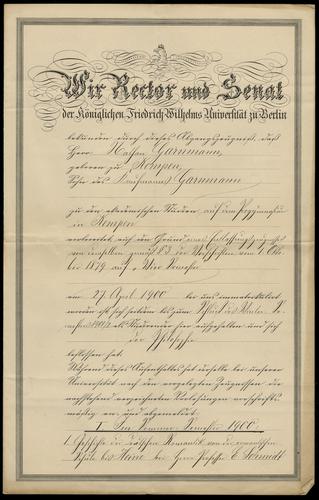 Wir Rector und Senat
der Königlichen Friedrich-Wilhelms Universität zu Berlin
bekunden durch dieses Abgangszeugniß, daß
Herr Nathan Garnmann,
geboren zu Kempen,
Sohn des Kaufmanns Garnmann
zu den akademischen Studien auf dem Progymnasium
in Kempen
vorbereitet, auf den Grund
von demselben gemäß § 3 der Vorschriften vom 1. Okto-
ber 1879 auf vier Semester
am 27 April 1900 bei uns immatriculirt
worden ist, sich seitdem bis zum Schluß des Winter-Se-
mesters als Studirender hier aufgehalten und sich
der Philosophie
beflissen hat.
Während dieses Aufenthaltes hat derselbe bei unserer
Universität nach den vorgelegten Zeugnissen die
nachstehend verzeichneten Vorlesungen vorschrifts-
mäßig an- und abgemeldet:
I. Im Sommer-Semester 1900
1. Geschichte der deutschen Romantik von der romantischen
Schule bis Heine bei Herrn Professor E. Schmidt